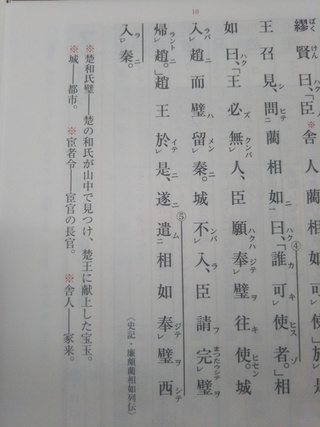 繆賢曰、「臣舎人藺相
王召見、問藺相如曰、「誰可使者。」相
如曰、「王必無人、臣願奉璧往使。城
入趙而璧留秦。城不入、臣請完璧
帰趙。」趙王於是、遂遣相如奉璧西
入秦。
〈史記・廉頗藺相如列伝〉
※楚和氏璧――楚の和氏が山中で見つけ、楚王に献上した宝玉。
※城――都市。 ※宦者令――宦官の長官。 ※舎人――家来。
10